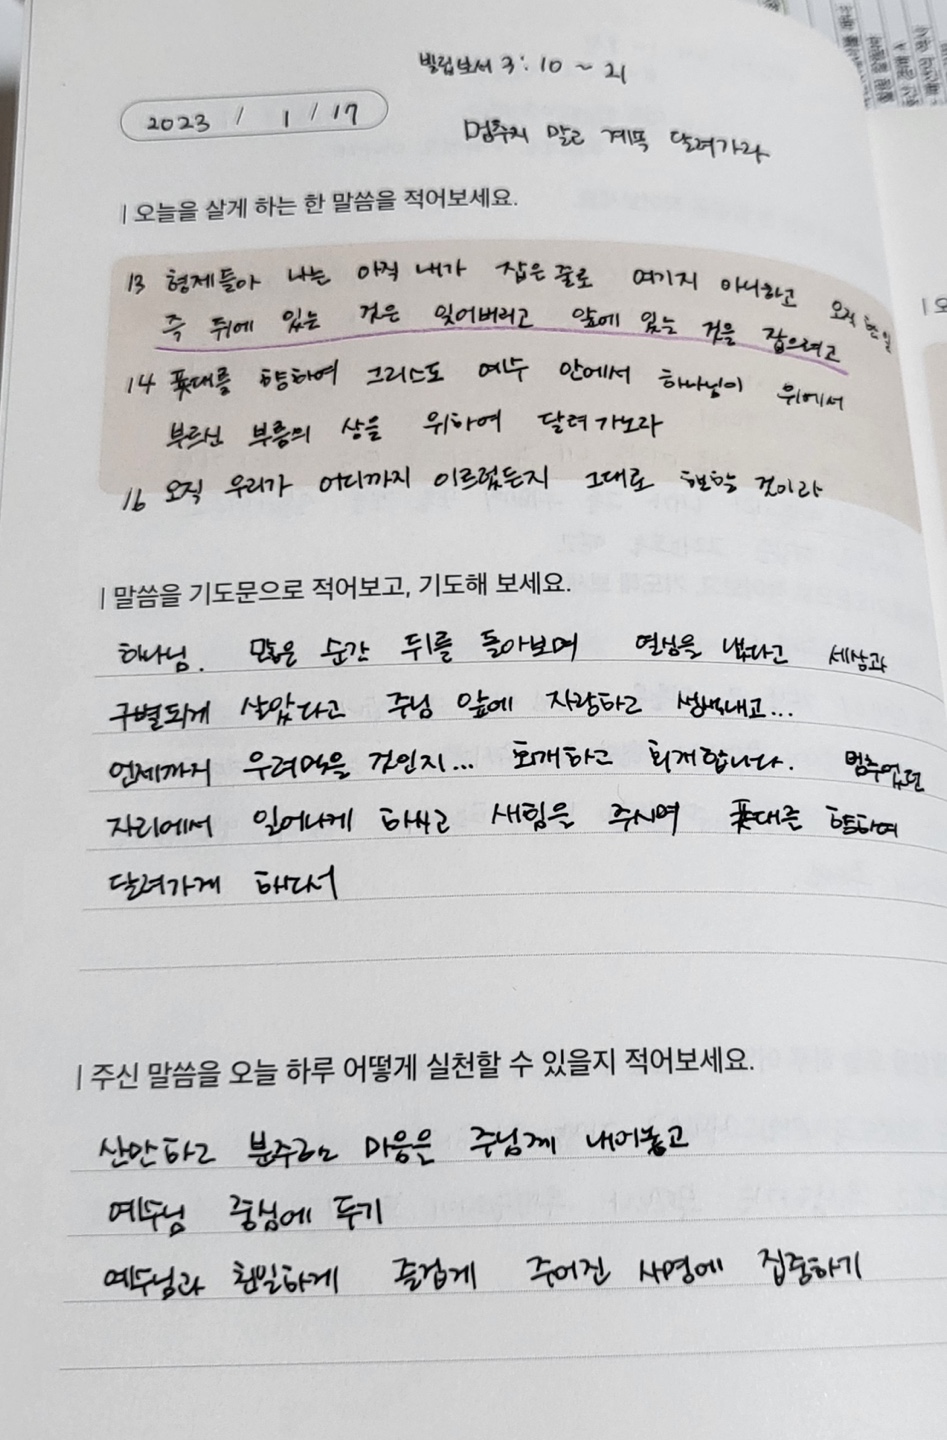 빌립보서 3:10~21
2023 / 1 / 17
멈추지 말고 계속 달려가라
| 오늘을 살게 하는 한 말씀을 적어보세요.
13 형제들아 나는 아직 내가 잡은 줄로 여기지 아니하고 오직 한 일
즉 뒤에 있는 것은 잊어버리고 앞에 있는 것을 잡으려고
14 푯대를 향하여 그리스도 예수 안에서 하나님이 위에서
부르신 부름의 상을 위하여 달려가노라
16 오직 우리가 어디까지 이르렀든지 그대로 행할 것이라
| 말씀을 기도문으로 적어보고, 기도해 보세요.
하나님. 많은 순간 뒤를 돌아보며 열심을 냈다고 세상과
구별되게 살았다고 주님 앞에 자랑하고 생색내고...
언제까지 우려먹을 것인지... 회개하고 회개합니다. 멈추었던
자리에서 일어나게 하시고 새힘을 주시며 푯대를 향하여
달려가게 하소서
| 주신 말씀을 오늘 하루 어떻게 실천할 수 있을지 적어보세요.
산만하고 분주한 마음은 주님께 내어놓고
예수님 중심에 두기
예수님과 친밀하게 즐겁게 주어진 사명에 집중하기